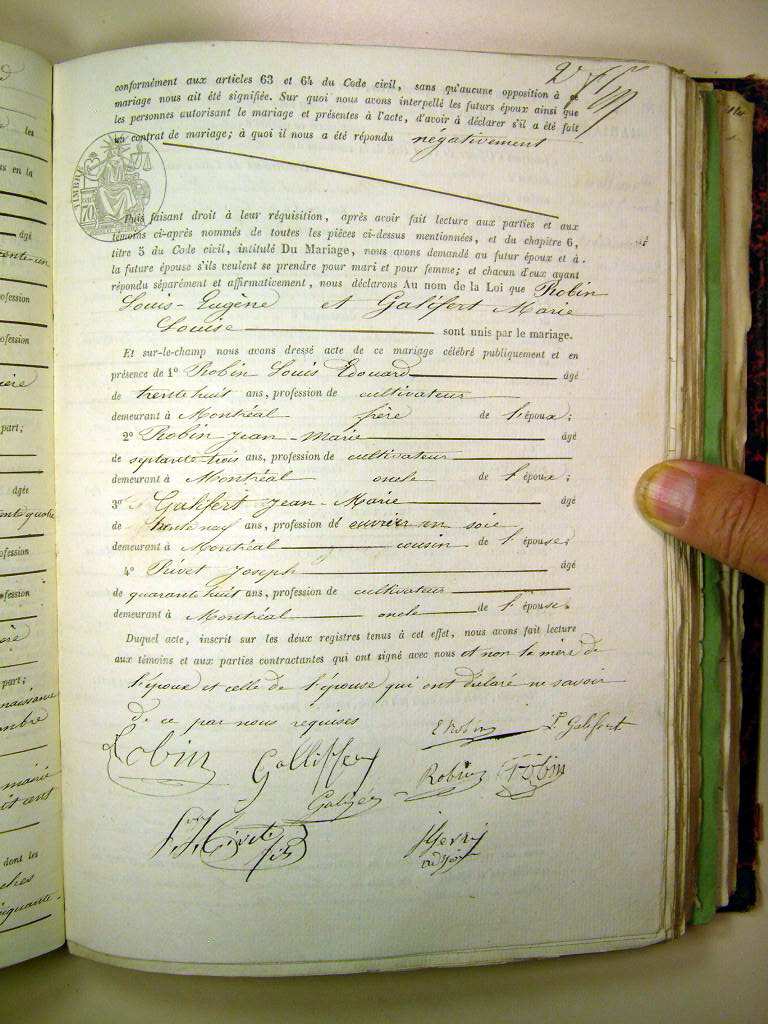 conformément aux articles 63 et 64 du Code civil, sans qu'aucune opposition à ce
mariage nous ait été signifiée. Sur quoi nous avons interpellé les futurs époux ainsi que
les personnes autorisant le mariage et présentes à l'acte, d'avoir à déclarer s'il a été fait
un contrat de mariage; à quoi il nous a été répondu négativement
TIMBRE
70
Puis faisant droit à leur réquisition, après avoir fait lecture aux parties et aux
témoins ci-après nommés de toutes les pièces ci-dessus mentionnées, et du chapitre 6,
titre 5 du Code civil, intitulé Du Mariage, nous avons demandé au futur époux et à
la future épouse s'ils veulent se prendre pour mari et pour femme; et chacun d'eux ayant
répondu séparément et affirmativement, nous déclarons Au nom de la Loi que Robin
Louis-Eugène et Galifert Marie
Louise sont unis par le mariage.
Et sur-le-champ nous avons dressé acte de ce mariage célébré publiquement et en
présence de 1º Robin Louis Edouard âgé
de trente huit ans, profession de cultivateur
demeurant à Montréal frère de l'époux;
2º Robin Jean-Marie âgé
de septante trois ans, profession de cultivateur
demeurant à Montréal oncle de l'époux;
3º Galifert Jean-Marie âgé
de trente neuf ans, profession de ouvrier en soie
demeurant à Montréal cousin de l'épouse;
4º Privet Joseph âgé
de quarante huit ans, profession de cultivateur
demeurant à Montréal oncle de l'épouse.
Duquel acte, inscrit sur les deux registres tenus à cet effet, nous avons fait lecture
aux témoins et aux parties contractantes qui ont signé avec nous et non la mère de
l'époux et celle de l'épouse qui ont déclaré ne savoir
de ce par nous requises
E Robin L. Galifert
Robin Galliffert Robin Robin